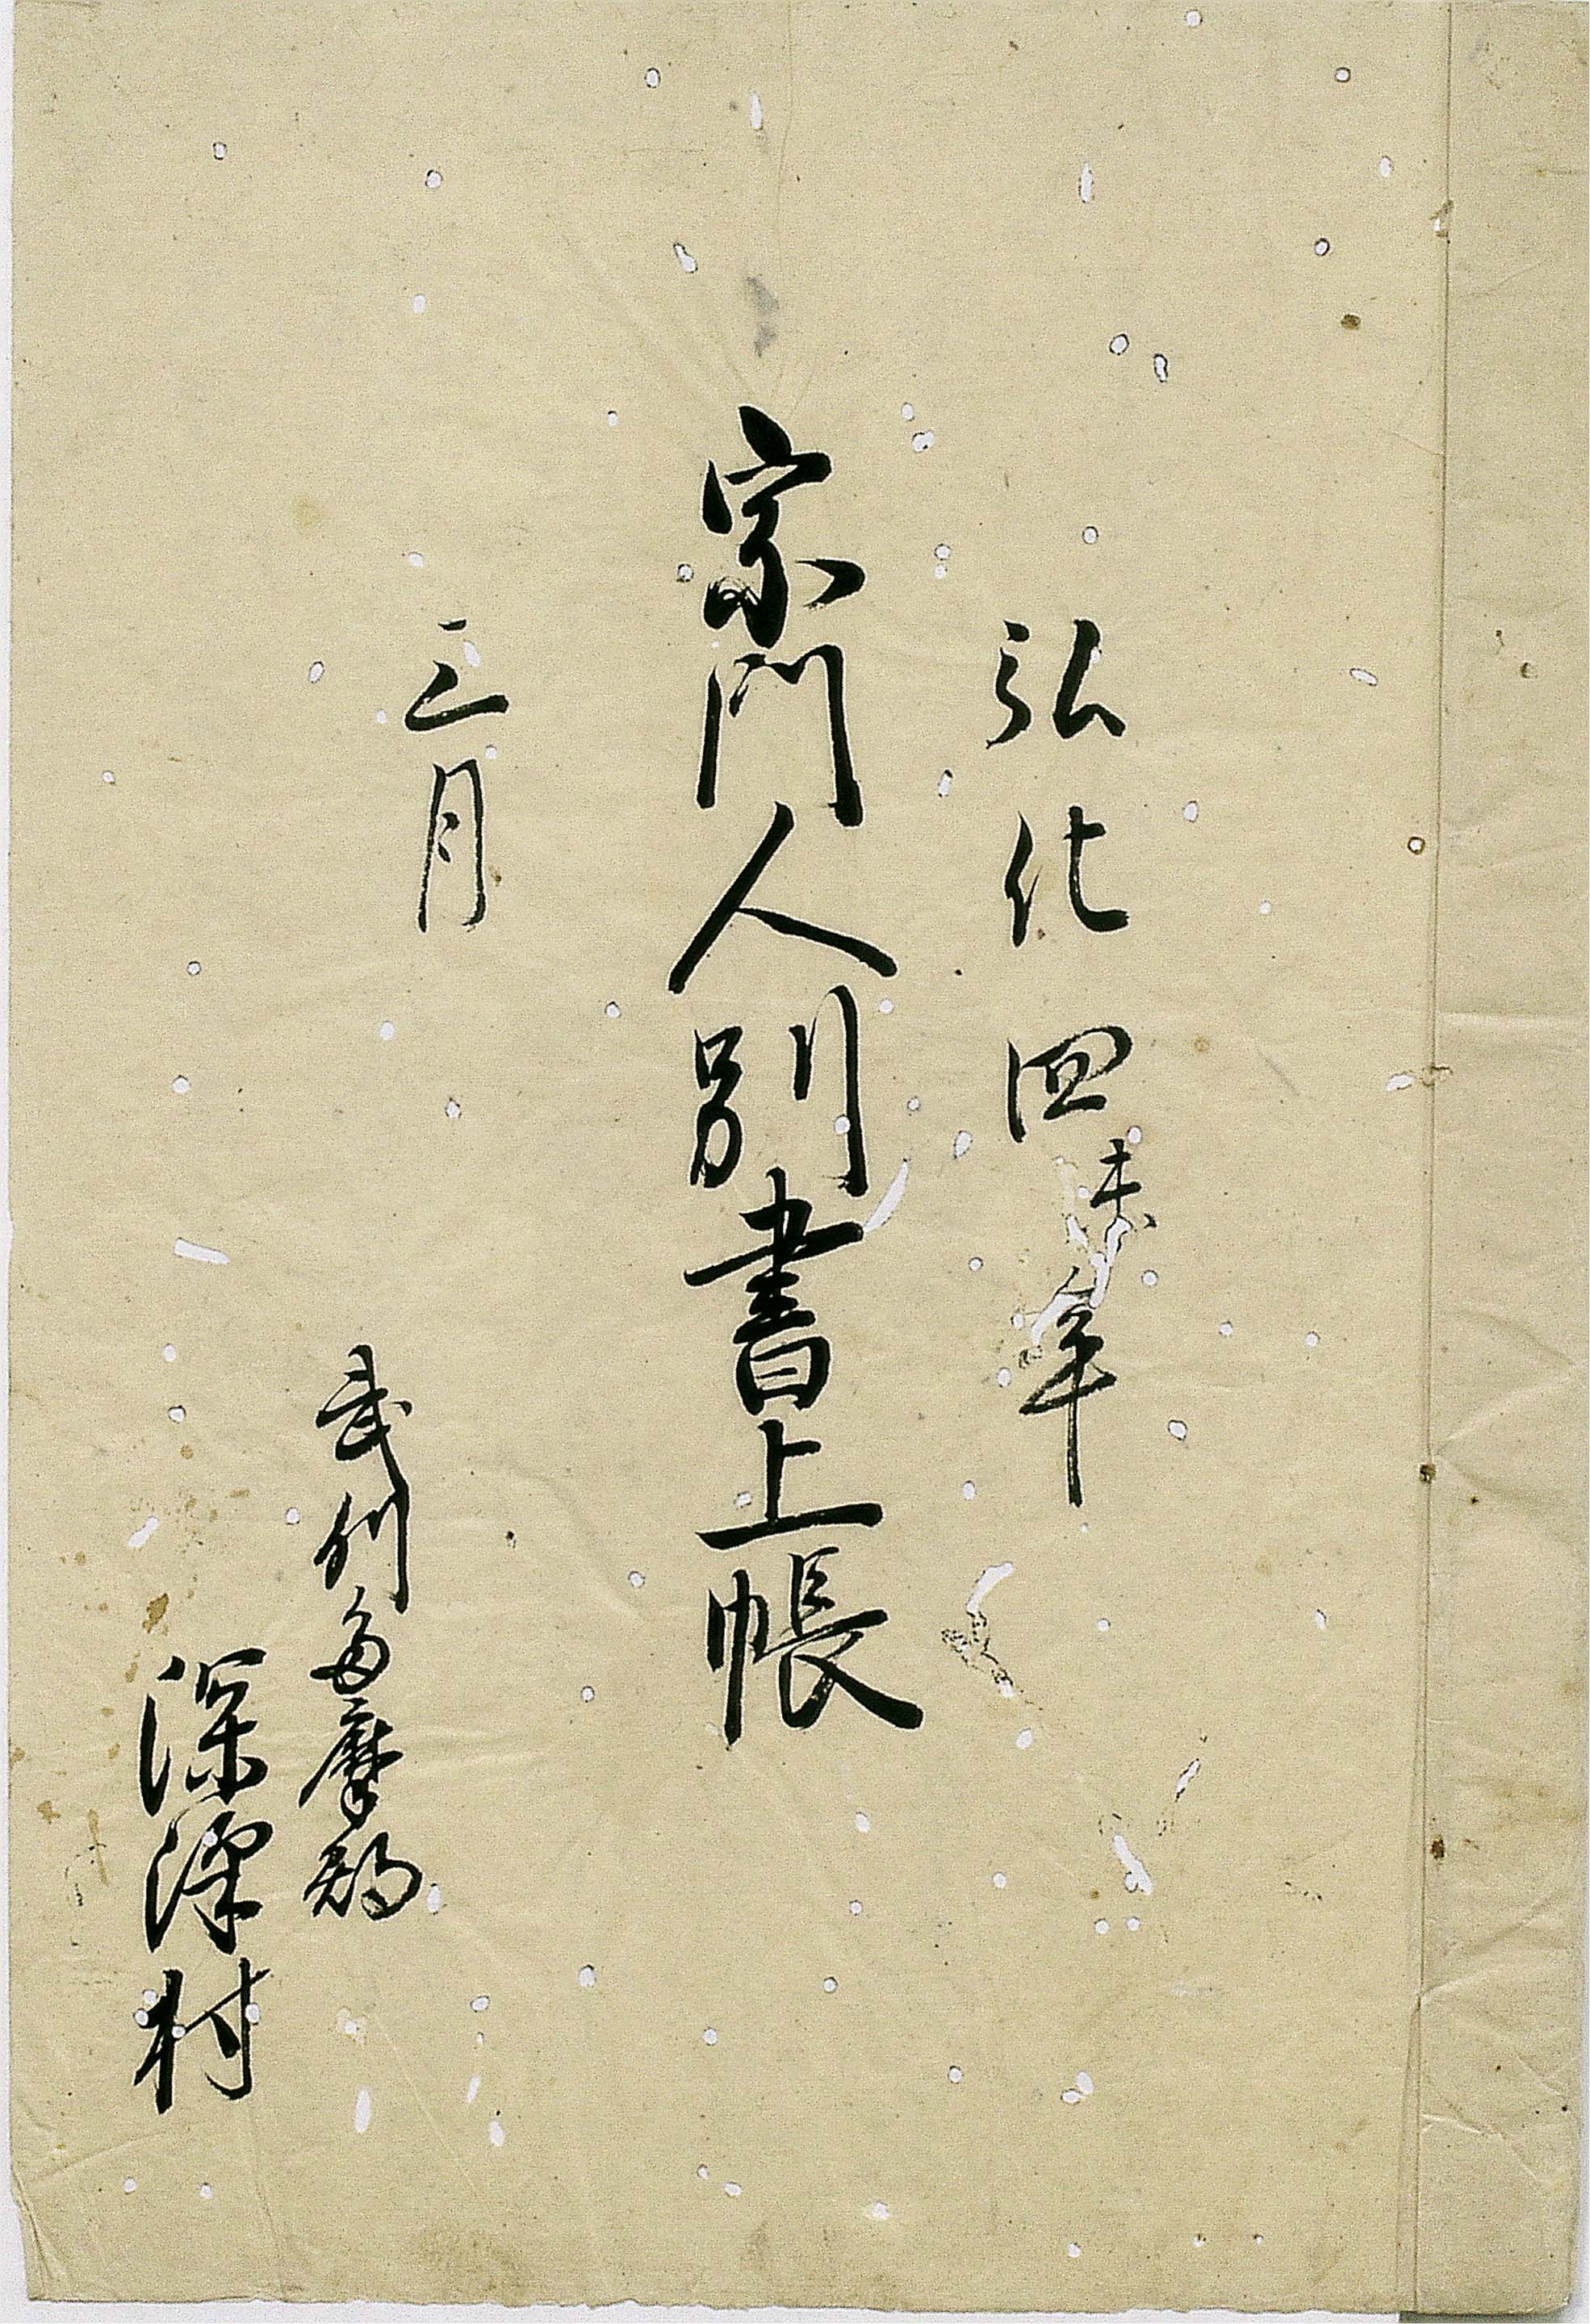 弘化四未年
宗門人別書上帳
三月
武州多摩郡
深澤村